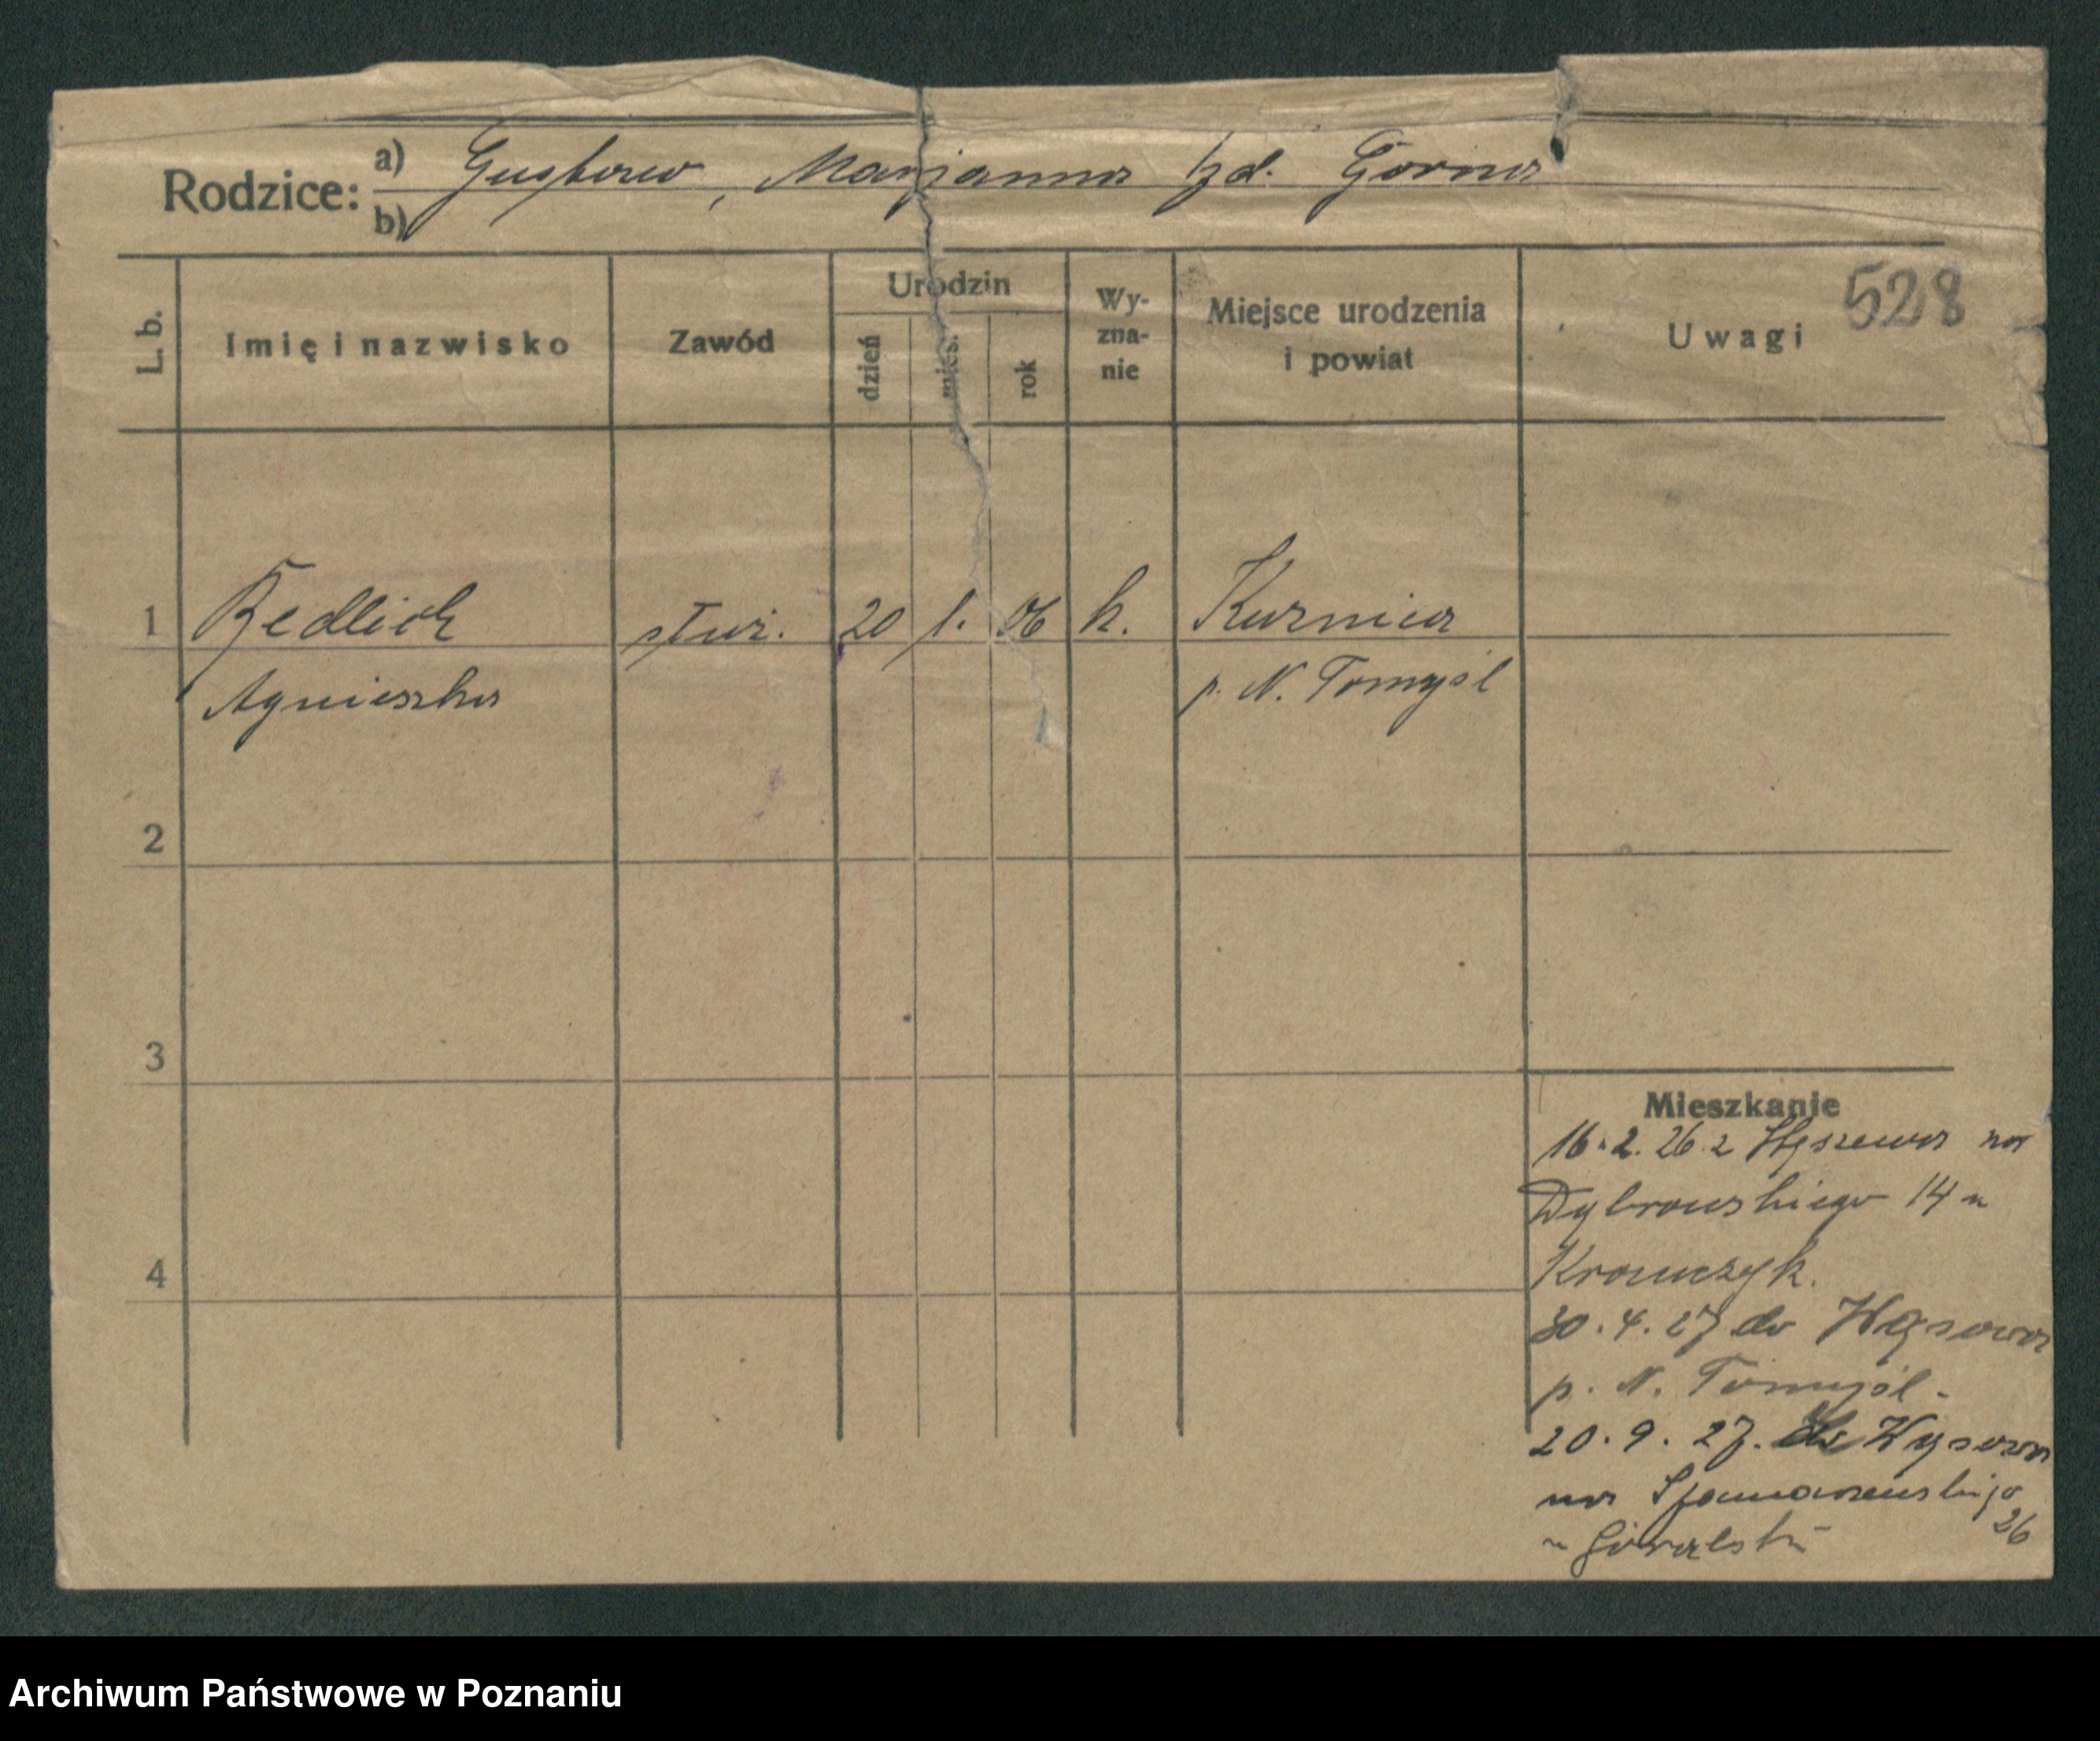 Rodzice: a) Gustaw, Marjanna zd. Górna
b)
L. b. Imię i nazwisko Zawód Urodzin dzień mies. rok Wy-zna-nie Miejsce urodzenia i powiat Uwagi 528
1 Bedlich służ. 20 1. 06 k. Kuźnica
Agnieszka p. N. Tomyśl
2
3
Mieszkanie
16.2.26 z na
Dąbrowskiego 14 u
4
Krawczyk.
30.4.27 do Wąsowa
p. N. Tomyśl.
20.9.27. Wąsowa
na Szamarzewskiego
26
u Góralski
Archiwum Państwowe w Poznaniu